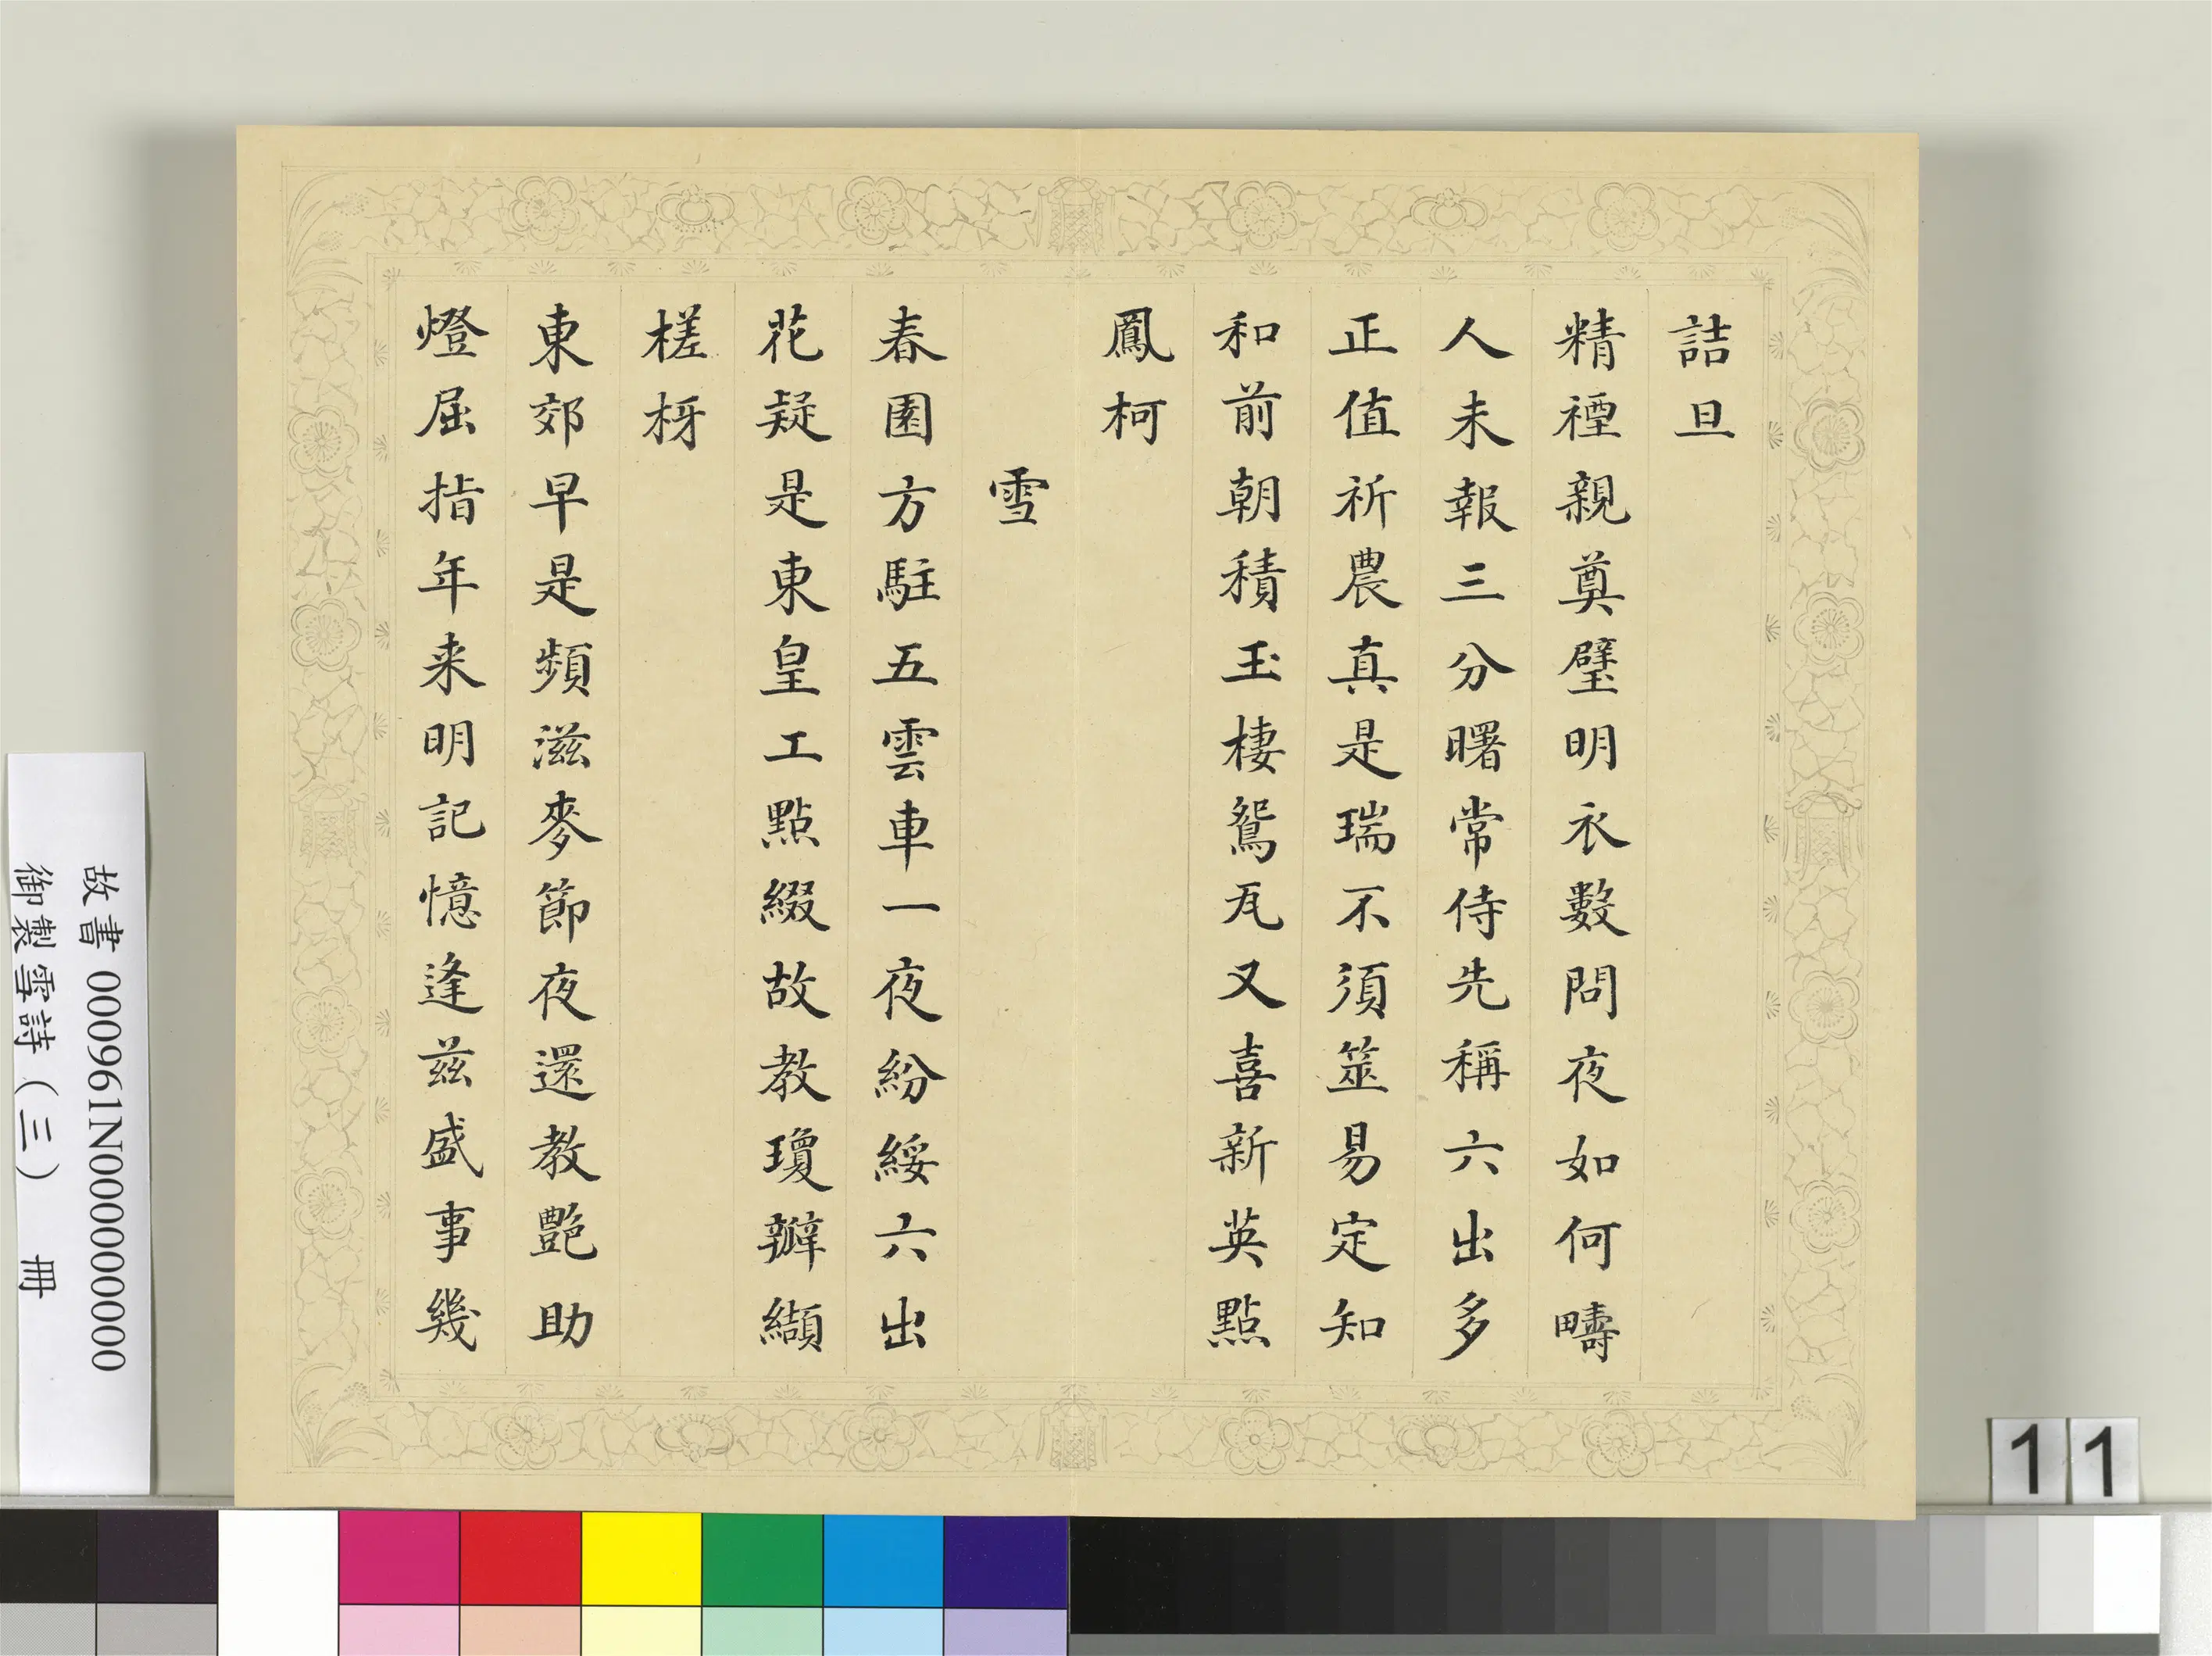 詰旦
精禋親奠璧明衣數問夜如何疇
人未報三分曙常侍先稱六出多
正值祈農真是瑞不須筮易定知
和前朝積玉棲鴛瓦又喜新英點
鳳柯
雪
春園方駐五雲車一夜紛綏六出
花疑是東皇工點綴故教瓊瓣纈
槎枒
東郊早是頻滋麥節夜還教艷助
燈屈指年来明記憶逢兹盛事幾
故書 000961N000000000
御製雪詩(三) 冊
11